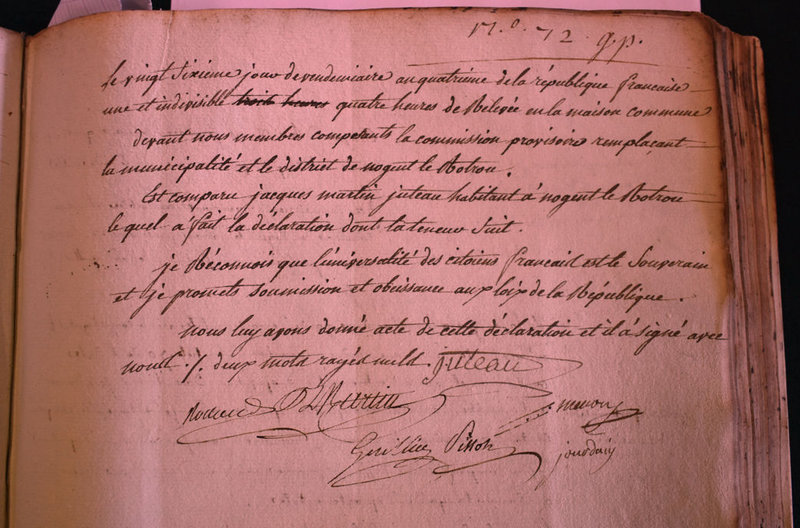 N.º 72 g.p.
Le vingt sixiéme jour de vendemiaire an quatriéme de la république francaise
une et indivisible trois heures quatre heures de Relevée en la maison commune
devant nous membres composants la commission provisoire remplaçant
la municipalité et le district de nogent le Rotrou.
Est comparu jacques martin juteau habitant à nogent le Rotrou
le quel a fait la déclaration dont la teneur suit.
je Réconnois que l'universalité des citoiens francais est le Souverain
et je promets soumission et obeissance aux loix de la République.
nous luy avons donné acte de cette déclaration et il à signé avec
nous ./. deux mots rayés nuls. juteau
Pisson
jourdain